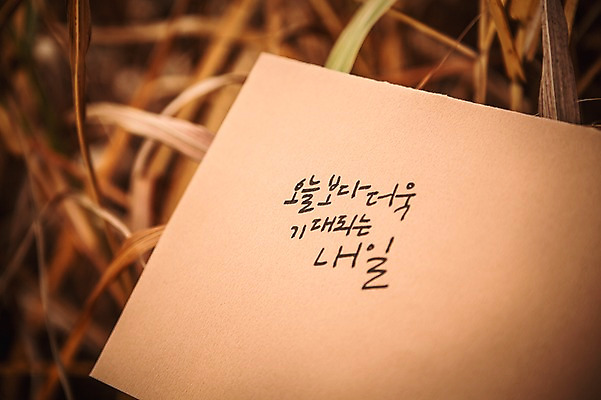 오늘보다더욱
기대되는
내일